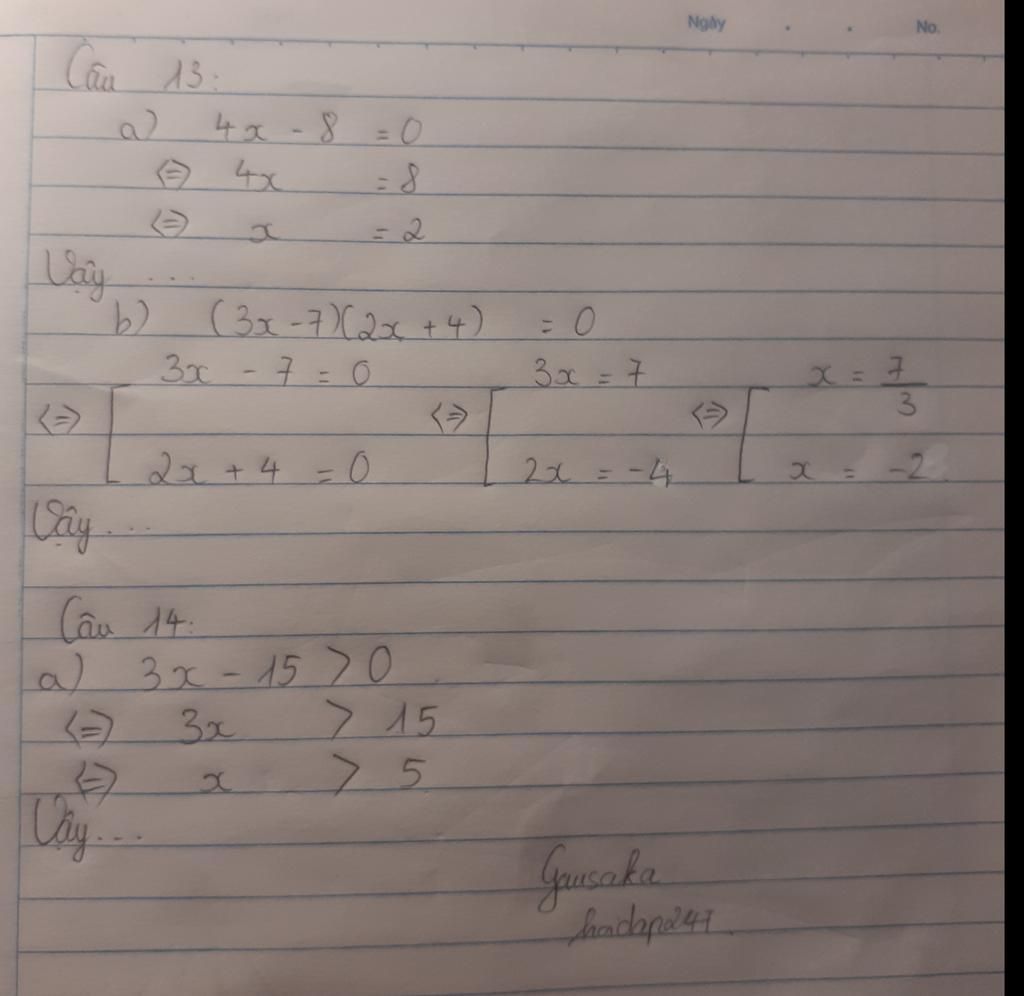 Ngày . . No.
Câu 13:
a) 4x - 8 = 0
<=> 4x = 8
<=> x = 2
Vậy ...
b) (3x - 7)(2x + 4) = 0
<=> [ 3x - 7 = 0 <=> [ 3x = 7 <=> [ x = 7/3
2x + 4 = 0 2x = -4 x = -2
Vậy ...
Câu 14:
a) 3x - 15 > 0
<=> 3x > 15
<=> x > 5
Vậy ...
Gausaka
hoidap247